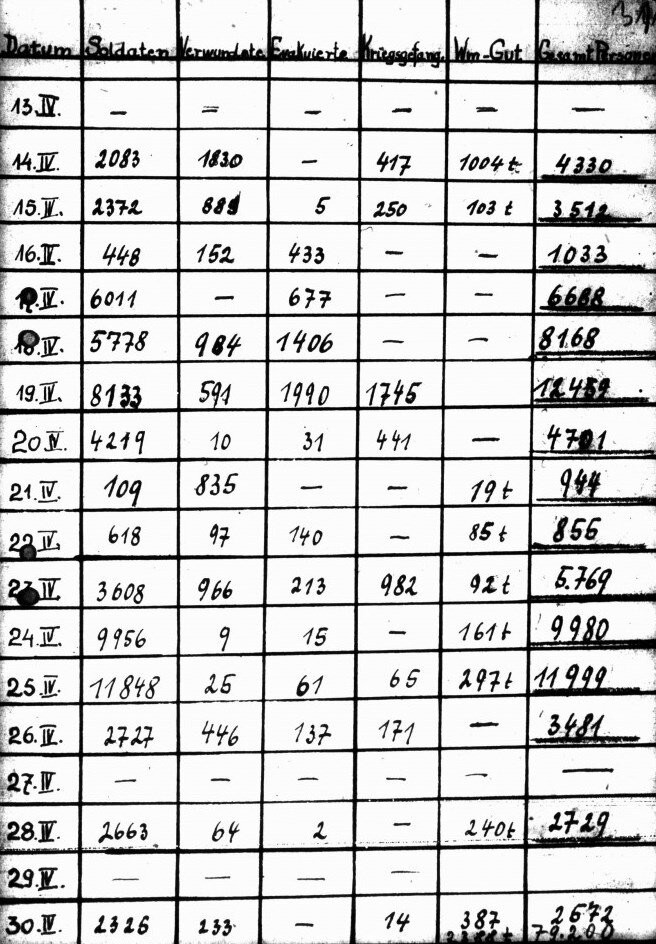 Datum Soldaten Verwundete Evakuierte Kriegsgefang. Wm-Gut Gesamt Personen
13.IV. — — — — — —
14.IV. 2083 1830 — 417 1004 t 4330
15.IV. 2372 885 5 250 103 t 3512
16.IV. 448 152 433 — — 1033
17.IV. 6011 — 677 — — 6688
18.IV. 5778 984 1406 — — 8168
19.IV. 8133 591 1990 1745 12459
20.IV. 4219 10 31 441 — 4701
21.IV. 109 835 — — 19 t 944
22.IV. 618 97 140 — 85 t 855
23.IV. 3608 966 213 982 92 t 5.769
24.IV. 9956 9 15 — 161 t 9980
25.IV. 11848 25 61 65 297 t 11999
26.IV. 2727 446 137 171 — 3481
27.IV. — — — — — —
28.IV. 2663 64 2 — 240 t 2729
29.IV. — — — —
30.IV. 2325 233 — 14 387 2572
2388 t 79.200